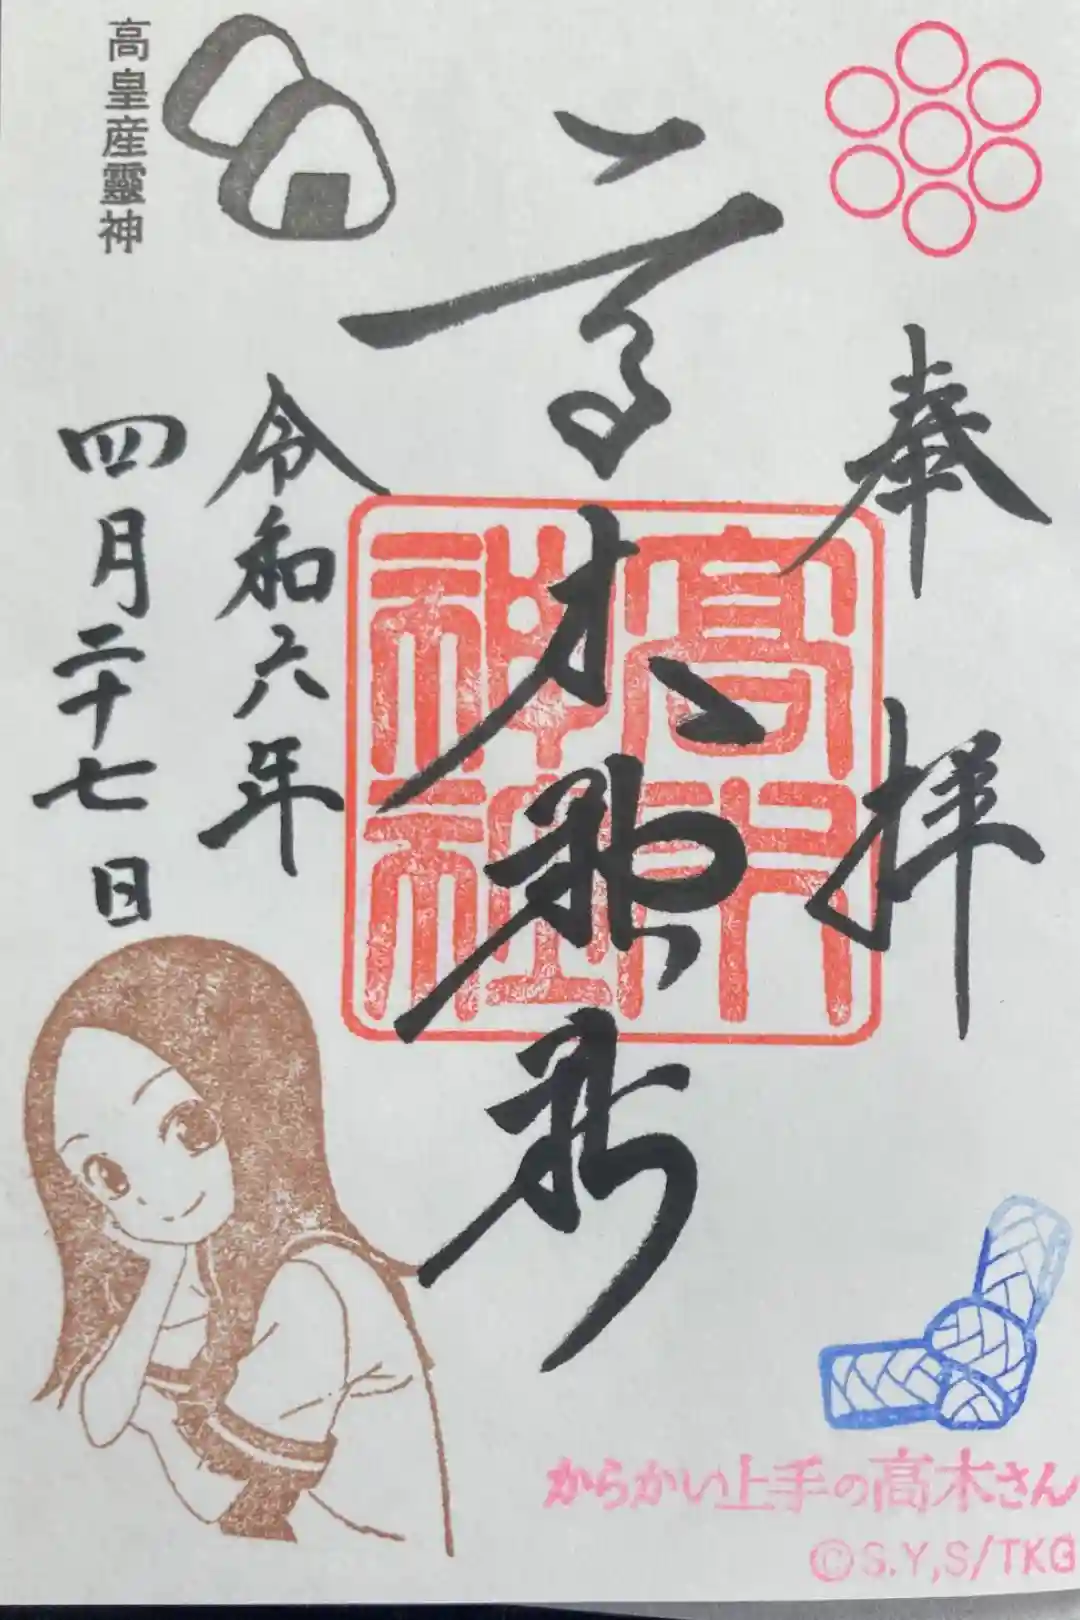 奉拝
高木神社
高木神社
高皇産靈神
令和六年
四月二十七日
からかい上手の高木さん
©S.Y,S/TKG